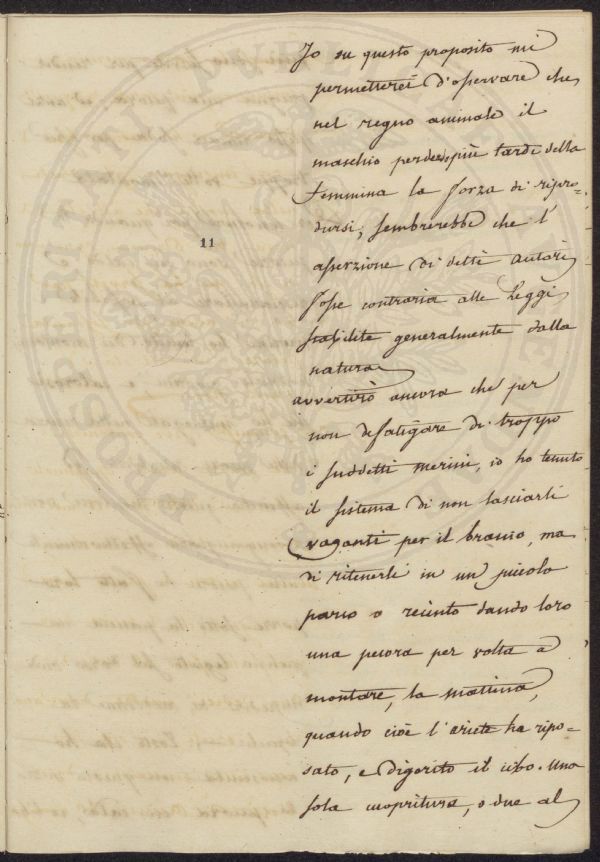 Io su questo proposito mi
permetterei d'osservare che
nel regno animale il
maschio perde più tardi della
Femmina la forza di ripro=
dursi; sembrerebbe che l'
asserzione di detti autori
fosse contraria alle Leggi
stabilite generalmente dalla
natura
11
avvertirò ancora che per
non defatigare di troppo
i suddetti merini, io ho tenuto
il sistema di non lasciarli
vaganti per il branco, ma
di ritenerli in un piccolo
parco o recinto dando loro
una pecora per volta a
montare, la mattina,
quando cioè l'ariete ha ripo=
sato, e digerito il cibo. Una
sola copritura, o due al